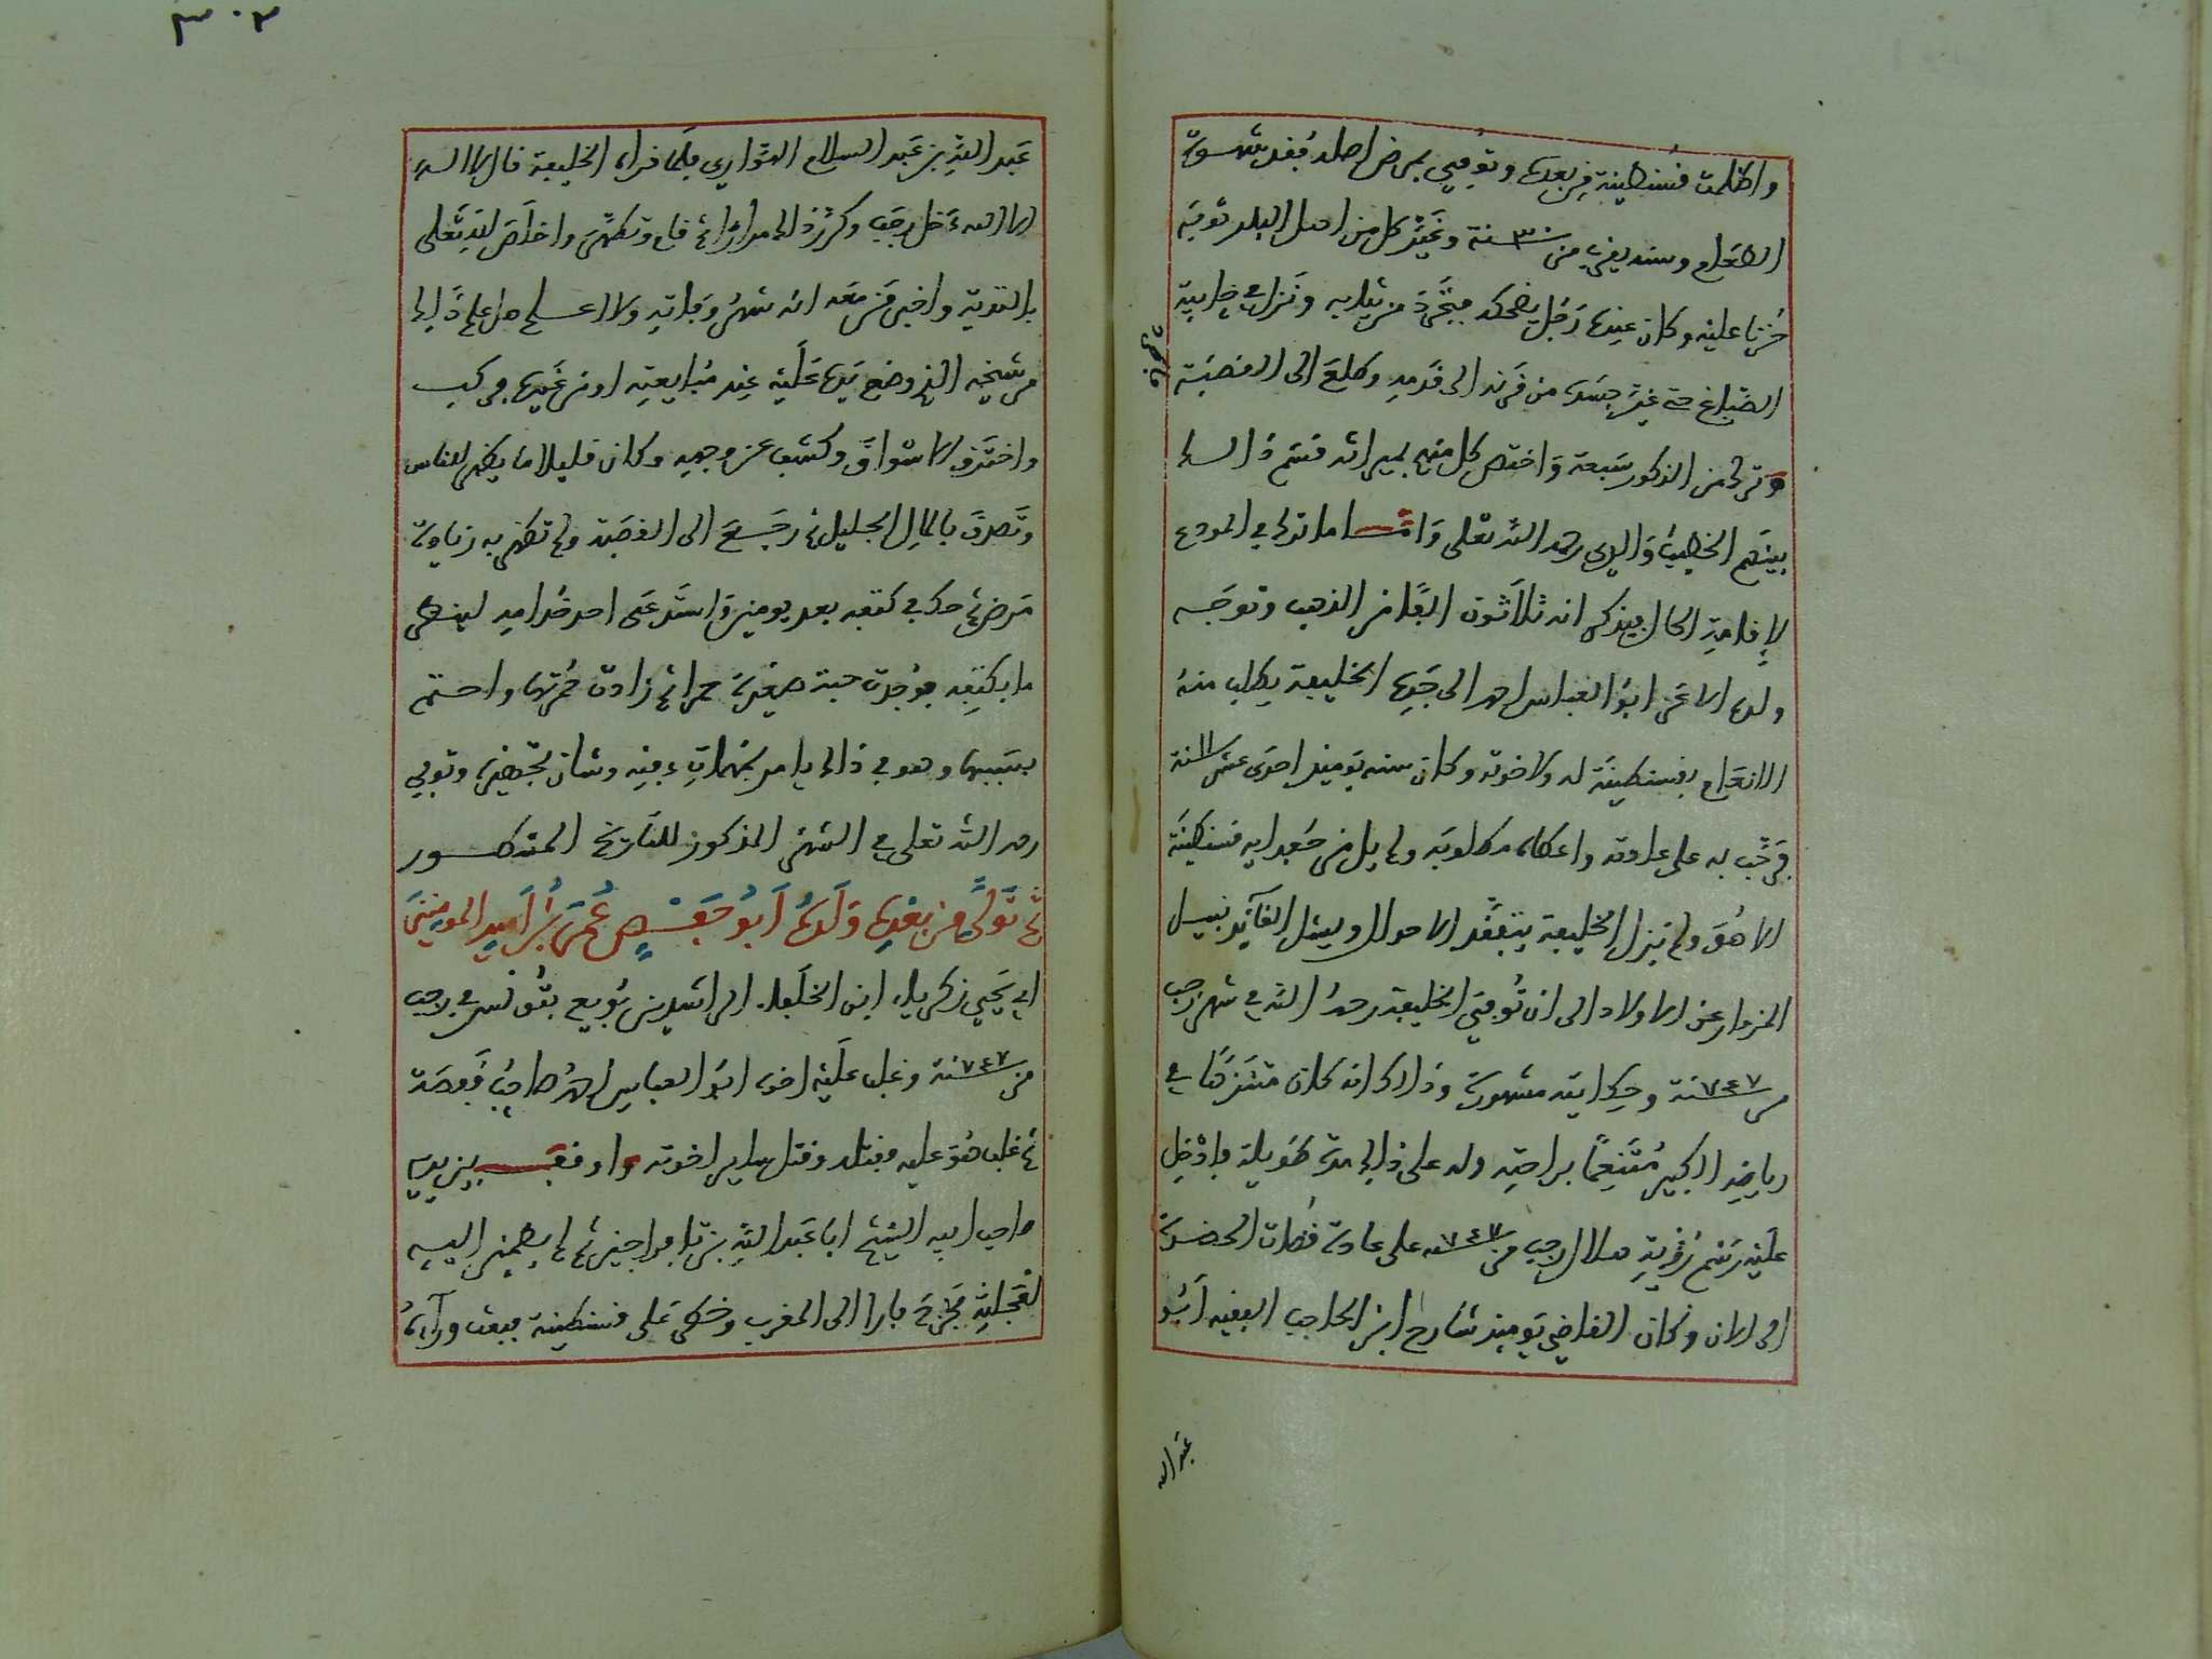 واظلمت قسنطينة من بعده وتوفي بمرض اصله بفد شهوة
الطعام وسنه يقرب من ٣٠ سنة وغير كل من اهل البلد ثوبه
حزنا عليه وكان عنده رجل يضحكه فتجرد من ثيابه ونزل في خابية
الصباغ حتى غير جسده من قرنه الى قدمه وطلع الى القصبة
وترك من الذكور سبعة واختص كل منهم بميراثه قسم ذالك
بينهم الخطيب والدي رحمه الله تعلى واما ما ترك في المودع
لاقامة الحال فيذكر انه ثلاثون الفا من الذهب وتوجه
ولده الاعز ابو العباس احمد الى جده الخليفة يطلب منه
الانعام بقسنطينة له ولاخوته وكان سنه يومئذ احدى عشر سنة
فرحب به على عادته واعطاه مطلوبه ولم يل من حفدايه قسنطينة
الا هو ولم يزل الخليفة يتفقد الاحوال ويسئل القائد نبيل
المزوار عن الاولاد الى ان توفي الخليفة رحمه الله في شهر رجب
من ٧٤٧ سنة وحكايته مشهورة وذالك انه كان متنزها في
رياضه الكبير متنعما براحته وله على ذالك مدة طويلة فادخل
عليه رسم رؤية هلال رجب من ٧٤٧ سنة على عادة قضات الحضرة
الى الان وكان القاضي يومئذ شارح ابن الحاجب الفقيه ابو
عبد الله
٣٠٢
عبد الله بن عبد السلام الهواري فلما قراه الخليفة قال لا اله
الا الله دخل رجب وكرر ذالك مرارا ثم قام وتطهر واخلص لله تعلى
بالتوبة واخبر من معه انه شهر وفاته ولا اعلم هل علم ذالك
من شيخه الذي وضع يده عليه عند مبايعته او من غيره فركب
واخترق الاسواق وكشف عن وجهه وكان قليلا ما يظهر للناس
وتصدق بالمال الجليل ثم رجع الى القصبة ولم تظهر به زيادة
مرض ثم حك في كتفه بعد يومين واستدعى احد خدامه لينظر
ما بكتفه فوجدت حبة صغيرة حمرا ثم زادت حمرتها واحتم
بسببها وهو في ذالك يامر بمهمات دفنه وشان تجهيزه وتوفي
رحمه الله تعلى في الشهر المذكور للتاريخ المذكور
ثم تولى من بعده ولده ابو حفص عمر بن امير المومنين
ابي يحيى زكرياء ابن الخلفاء الراشدين بويع بتونس في رجب
من ٧٤٧ سنة وغلب عليه اخوه ابو العباس احمد صاحب قفصة
ثم غلب هو عليه فقتله وقتل ساير اخوته واوقف بين يديه
صاحب ابيه الشيخ ابا عبد الله بن تافراجين ثم لم يطمئن اليه
لعجلته فخرج فارا الى المغرب وخطر على قسنطينة فبعث وراءه